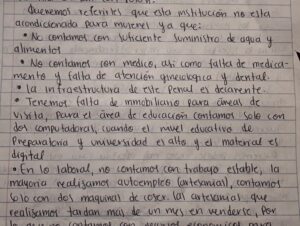 Queremos referirles que esta institución no esta
acondicionada para mujeres ya que:
• No contamos con suficiente suministro de agua y
alimentos
• No contamos con medico, así como falta de medica-
mento y falta de atención ginecologica y dental.
• La infraestructura de este Penal es
• Tenemos falta de inmobiliario para áreas de
visita, para el área de educación contamos solo con
dos computadoras, cuando el nivel educativo de
Preparatoria y universidad es alto y el material es
digital
• En lo laboral, no contamos con trabajo estable, la
mayoria realisamos autoempleo (artesanial), contamos
solo con dos maquinas de coser. las artesanias que
realisamos tardan mas de un mes en venderse, por